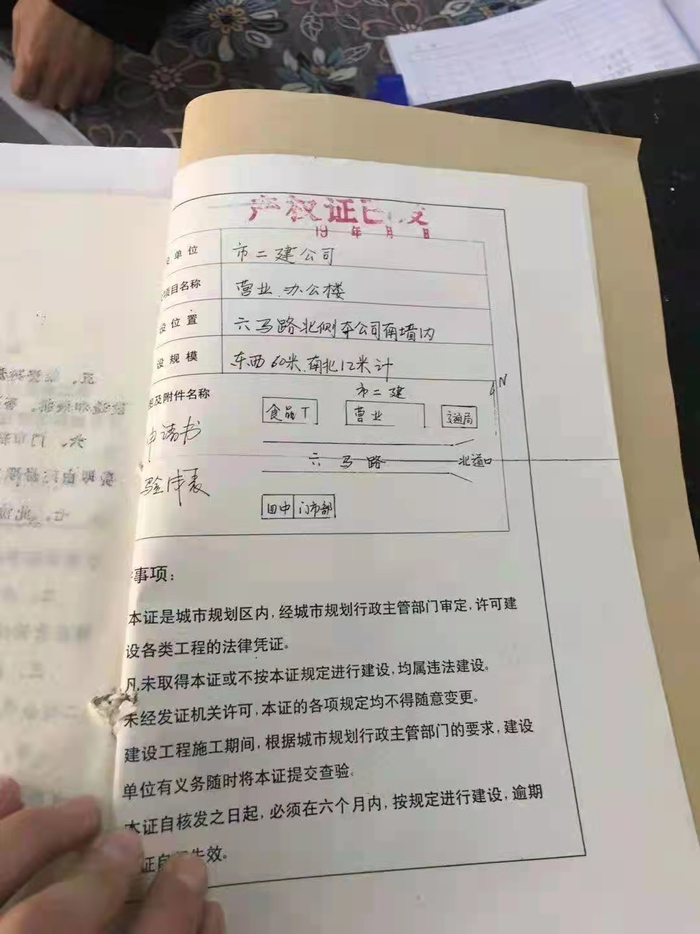 产权证已发
19 年 月 日
单位 市二建公司
项目名称 营业、办公楼
设位置 六马路北侧本公司南墙内
设规模 东西60米、南北12米计
及附件名称
申请书
验件表
市二建
N
食品厂 营业 交通局
六马路 北道口
田中 门市部
事项：
本证是城市规划区内，经城市规划行政主管部门审定，许可建
设各类工程的法律凭证。
凡未取得本证或不按本证规定进行建设，均属违法建设。
未经发证机关许可，本证的各项规定均不得随意变更。
建设工程施工期间，根据城市规划行政主管部门的要求，建设
单位有义务随时将本证提交查验。
本证自核发之日起，必须在六个月内，按规定进行建设，逾期
证自 失效。